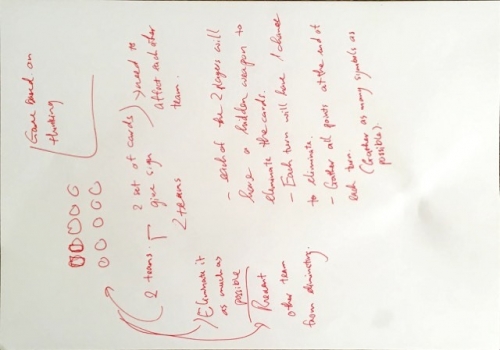 Game Based on
thinking
2 teams.
2 set of cards
give sign
2 teams
need to
affect each other
team.
Eliminate it
as much as
possible
Prevent
other team
from eliminating.
- each of the 2 players will
have a hidden weapon to
eliminate the cards.
- Each turn will have 1 chance
to eliminate.
- Gather all points at the end of
each turn.
(Gather as many symbols as
possible).